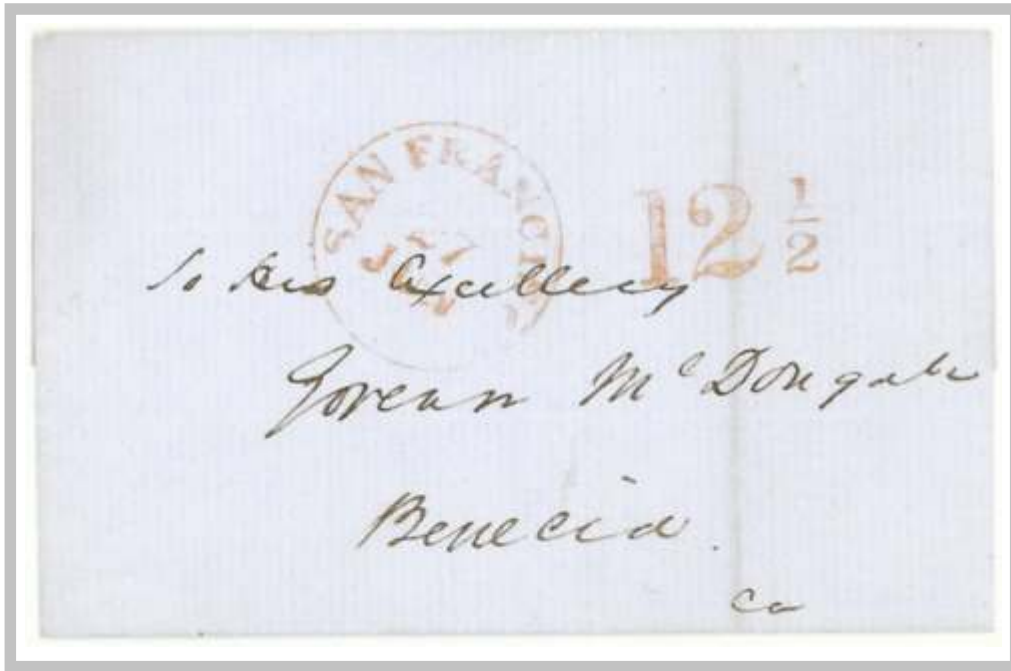 SAN FRANCISCO
27
12 1/2
To His Excellency
Govenor McDougal
Benecia.
Ca